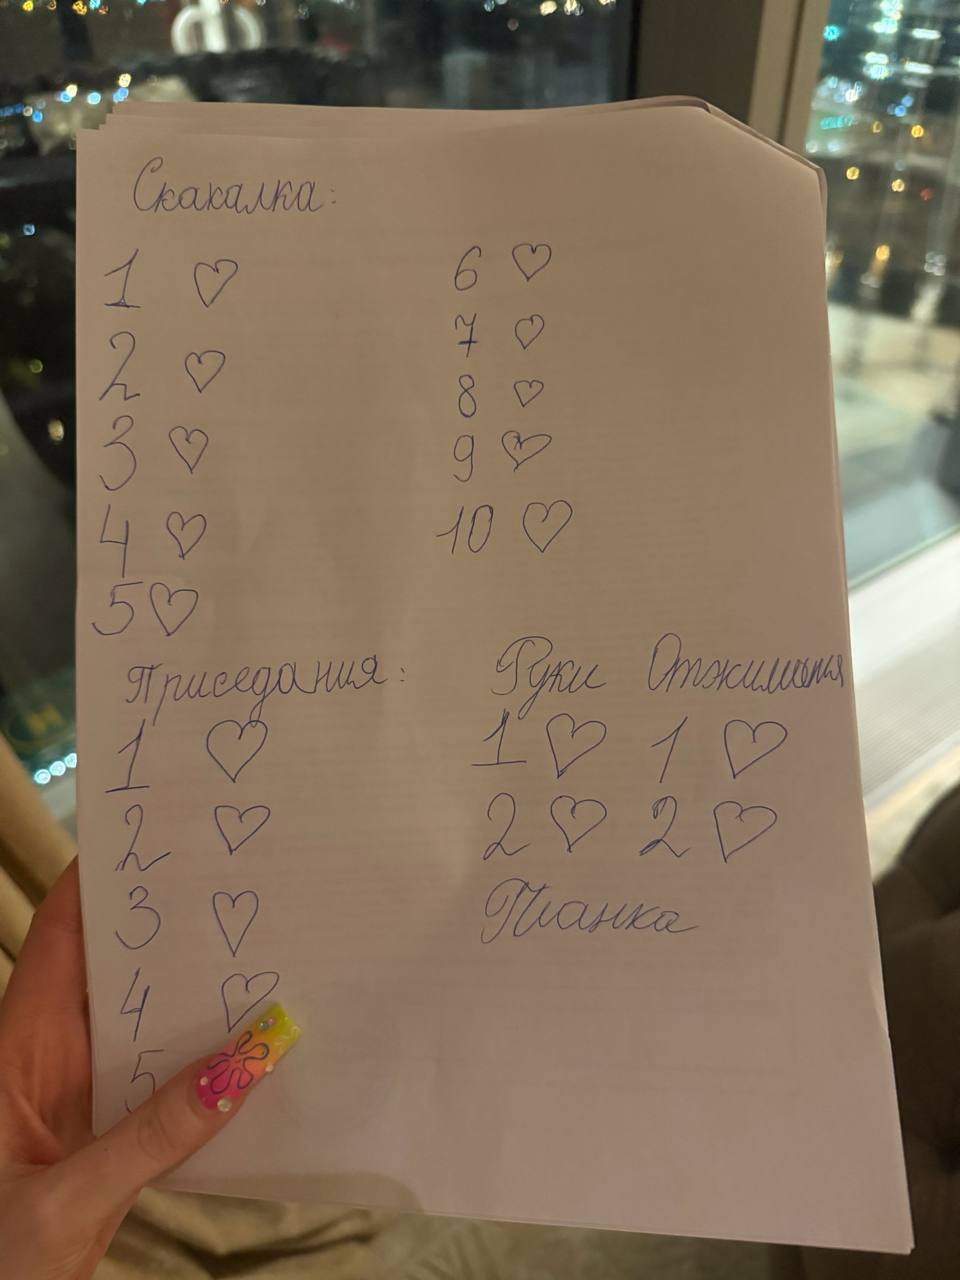 Скакалка:
1 ♡
2 ♡
3 ♡
4 ♡
5 ♡
6 ♡
7 ♡
8 ♡
9 ♡
10 ♡
Приседания:
1 ♡
2 ♡
3 ♡
4 ♡
5
Руки
1 ♡
2 ♡
Отжимания
1 ♡
2 ♡
Планка